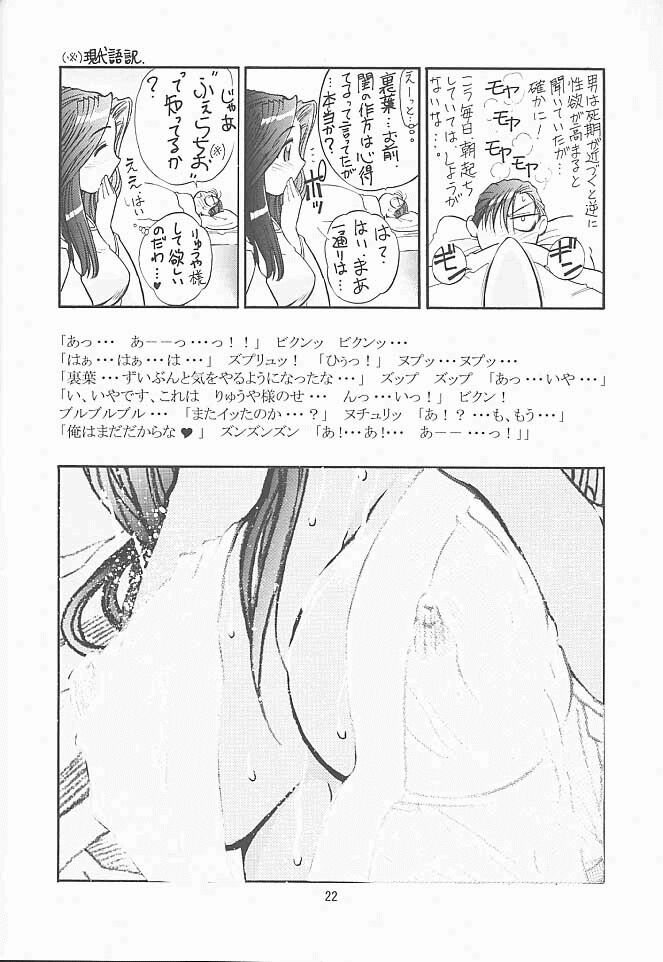 (※)現代語訳.
男は死期が近づくと逆に
性欲が高まると
聞いていたが…
確かに!
こう毎日朝起ち
していては、しょうが
ないな…。
モヤ
モヤ
モヤ
ギン
ギン
えーっと…。
裏葉…お前、
閨の作方は心得
てるって言ってたが
…本当か?
ポッ
は?
はい、まあ
一通りは…
じゃあ
"ぶぇらちお"(※)
って知ってるか
?
ええ…はい
りゅうや様
して欲しい
のだわ…♥
「あっ・・・ あーーっ・・・っ!!」 ビクンッ ビクンッ・・・
「はぁ・・・はぁ・・・は・・・」 ズプリュッ! 「ひぅっ!」 ヌプッ・・・ヌプッ・・・
「裏葉・・・ずいぶんと気をやるようになったな・・・」 ズップ ズップ 「あっ・・・いや・・・」
「い、いやです、これは りゅうや様のせ・・・ んっ・・・いっ!」 ビクン!
ブルブルブル・・・ 「またイッたのか・・・?」 ヌチュリッ 「あ!?・・・も、もう・・・」
「俺はまだだからな♥」 ズンズンズン 「あ!・・・あ!・・・ あーー・・・っ!」」
22